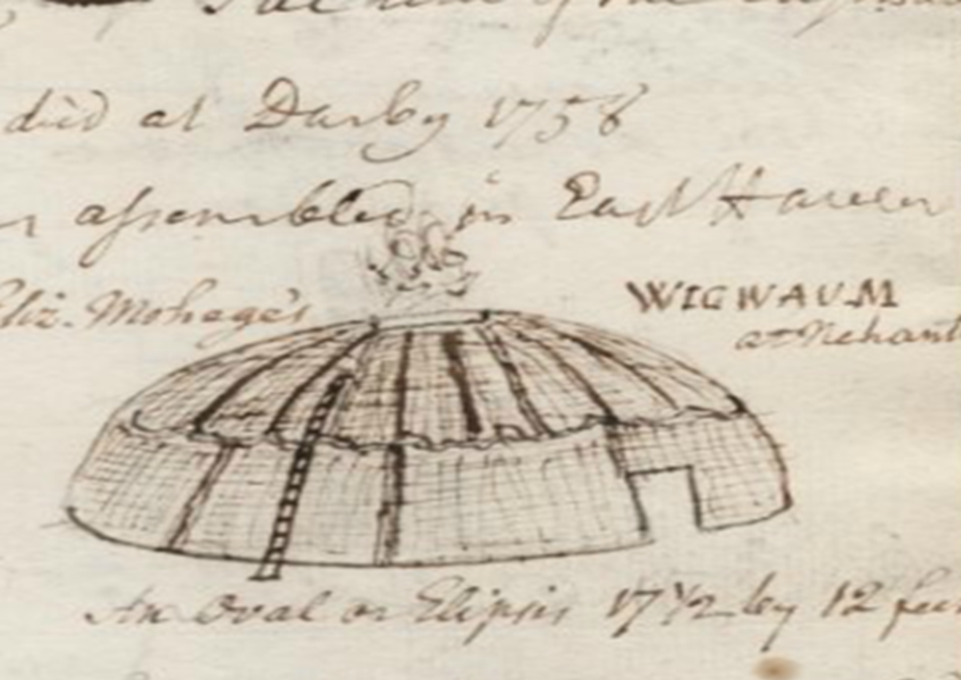 died at Darby 1758
assembled in East Haven
Eliz. Mohege's
WIGWAUM
at Nehant
An Oval or Elipsis 17½ by 12 feet